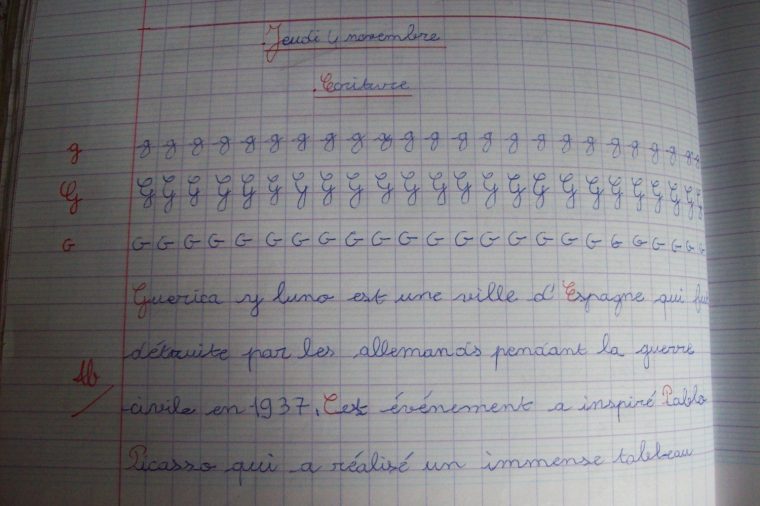 Jeudi 4 novembre
Ecriture
g g g g g g g g g g g g g g g g g g g g g g g g
G G G G G G G G G G G G G G G G G G G G G G G G
G G G G G G G G G G G G G G G G G G G G G G G G
Guerica y luno est une ville d'Espagne qui fu
détruite par les allemands pendant la guerre
Ab
civile en 1937. Cet événement a inspiré Pablo
Picasso qui a réalisé un immense tableau